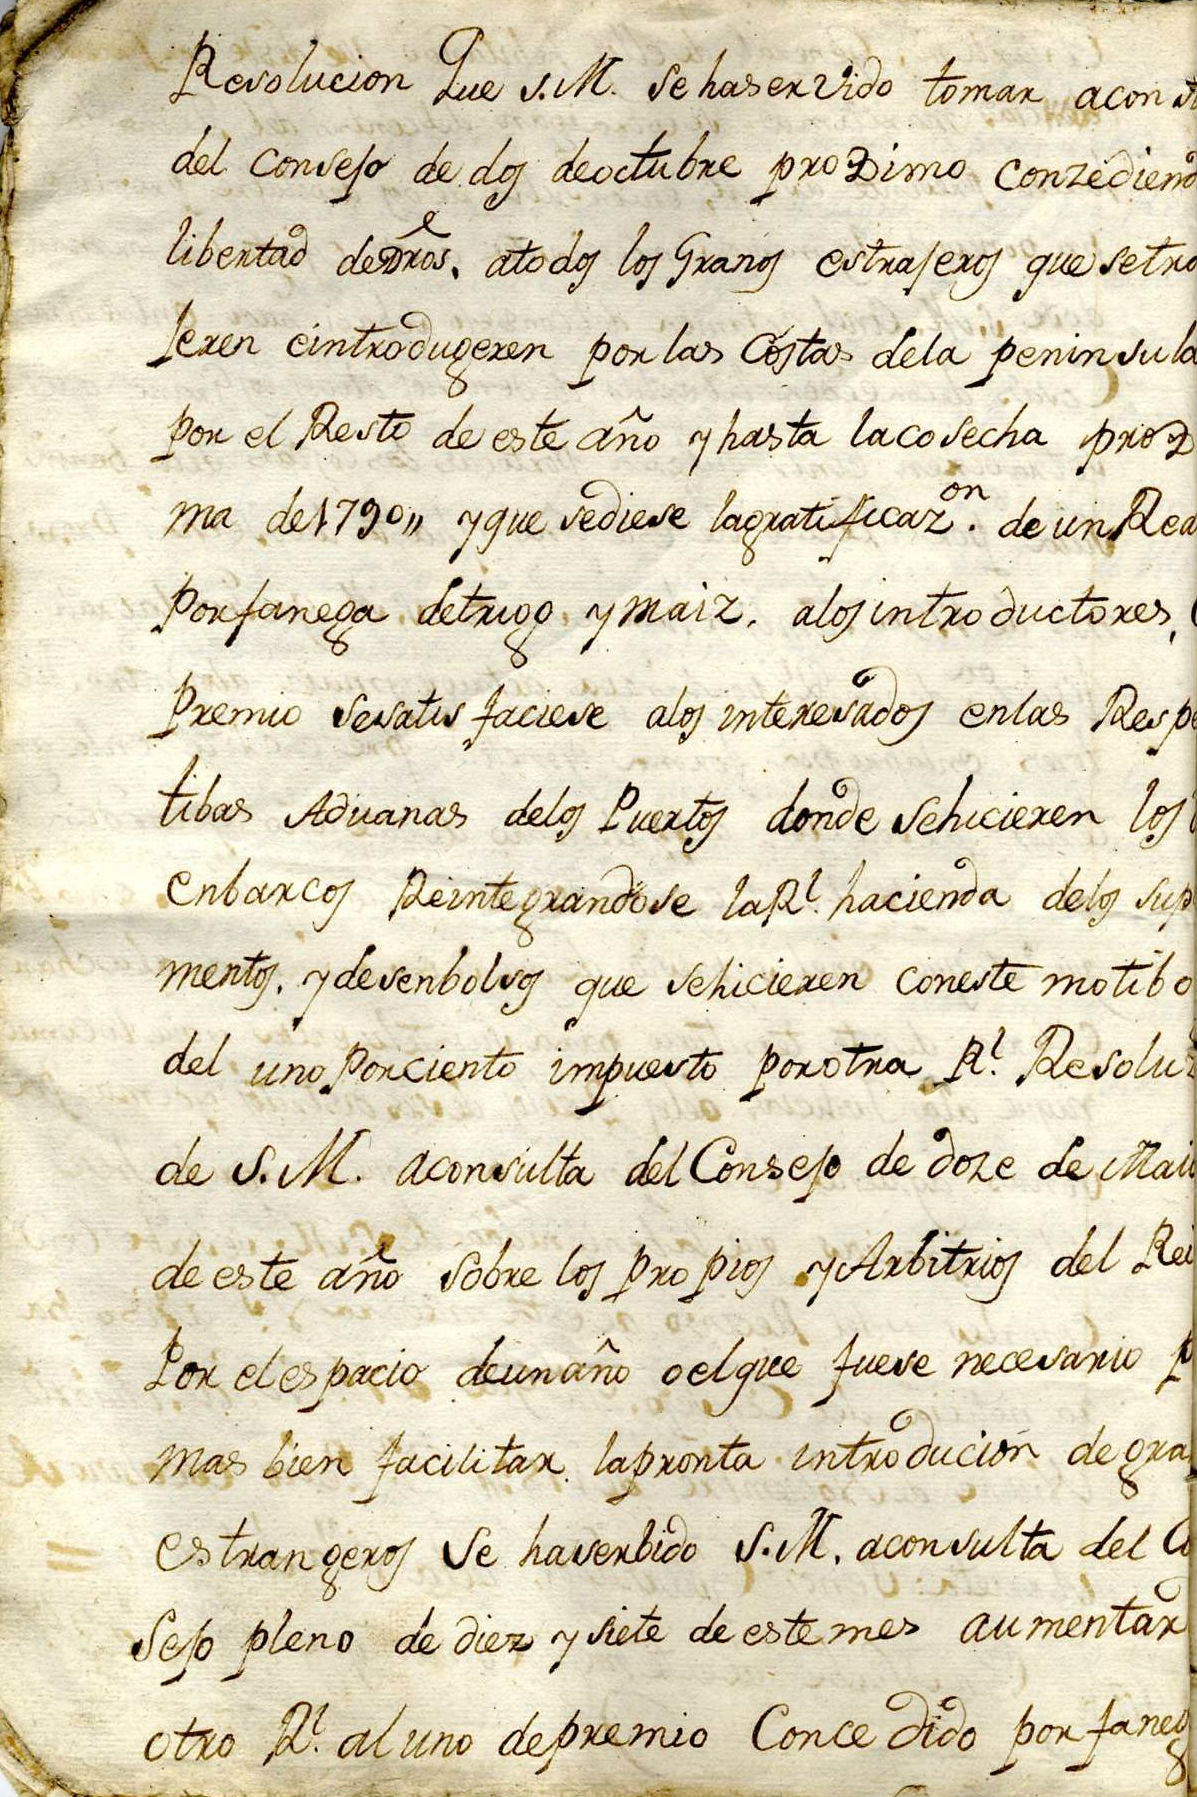 Resolucion Que S.M. se haservido tomar acons
del Consejo de dos deoctubre proximo Conzediend
libertad de dros. atodos los Granos estrajeros que setra
jeren eintrodugeren por las Costas dela peninsula
por el Resto de este año y hasta lacosecha prox
ma de 1790,, y que sediese lagratificazon. de un Rea
Por fanega detrigo y maiz. alos introductores,
Premio sesatisfaciese alos interesados enlas Respe
tibas Aduanas delos Puertos donde sehicieren los
enbarcos Reintegrandose la Rl. hacienda delos sup
mentos. y desenbolsos que sehicieren coneste motibo
del uno Porciento impuesto porotra Rl. Resolu
de S.M. aconsulta del Consejo de doze de Mai
de este año sobre los propios y Arbitrios del Rei
Por el espacio deunaño oelque fuese necesario p
mas bien facilitar lapronta introducion de gra
estrangeros se haserbido S.M. aconsulta del Co
sejo pleno de diez y siete de este mes aumentar
otro Rl. al uno depremio Concedido por faneg